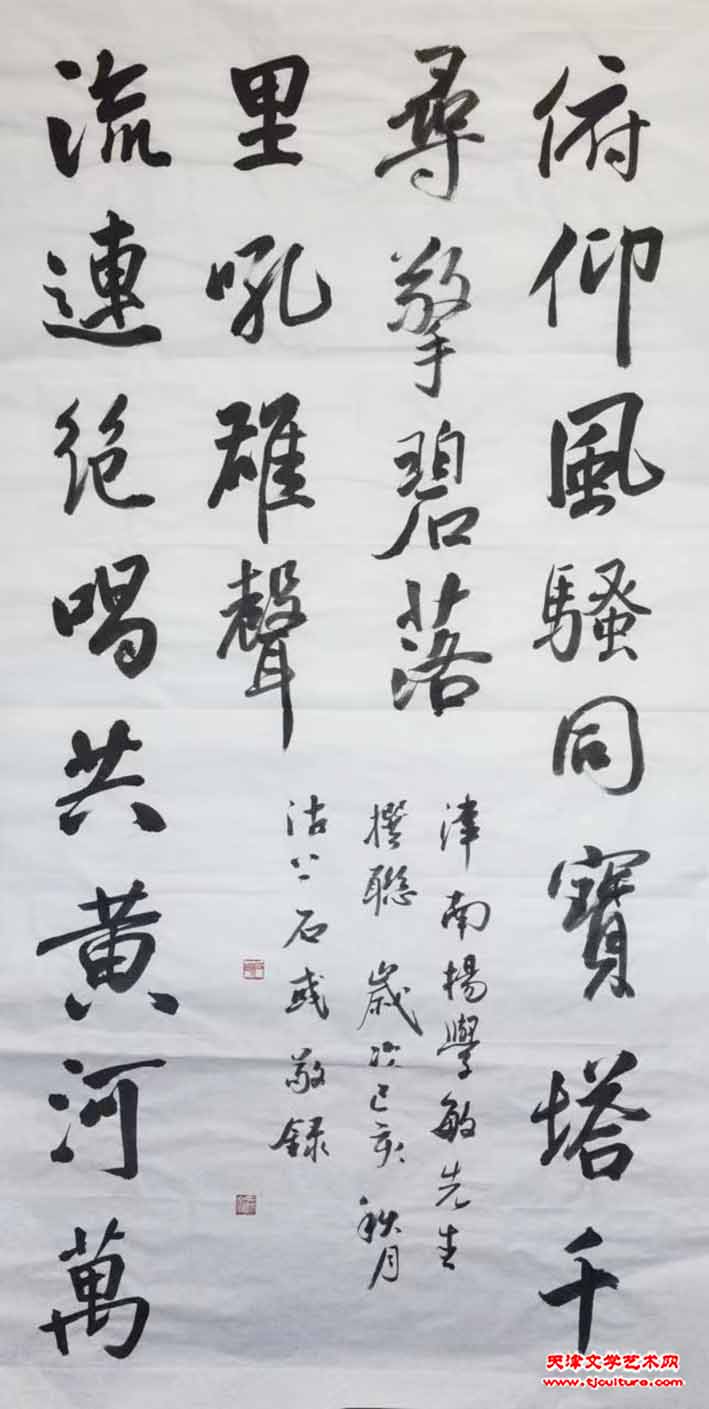 俯仰風騷同寶塔千
尋擎碧落
流連絶唱共黄河萬
里吼雄聲
津南楊學敏先生
撰聯 歲次己亥秋月
沽上石或敬録
天津文学艺术网
www.tjculture.com